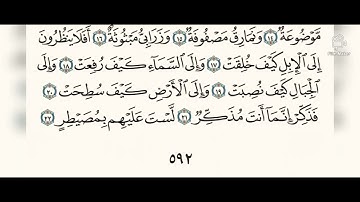 مَّوْضُوعَةٌ ١٤ وَنَمَارِقُ مَصْفُوفَةٌ ١٥ وَزَرَابِيُّ مَبْثُوثَةٌ ١٦ أَفَلَا يَنظُرُونَ
إِلَى الْإِبِلِ كَيْفَ خُلِقَتْ ١٧ وَإِلَى السَّمَاءِ كَيْفَ رُفِعَتْ ١٨ وَإِلَى
الْجِبَالِ كَيْفَ نُصِبَتْ ١٩ وَإِلَى الْأَرْضِ كَيْفَ سُطِحَتْ ٢٠
فَذَكِّرْ إِنَّمَا أَنتَ مُذَكِّرٌ ٢١ لَّسْتَ عَلَيْهِم بِمُصَيْطِرٍ ٢٢
٥٩٢